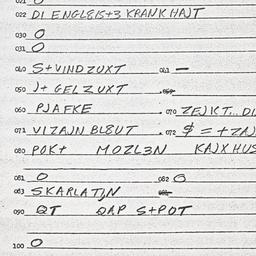 021 O
022 DI ENGL8IS+3 KRANKHAJT
030 O
031 O
040 S+VINDZUXT 041 —
050 J+ GELZUXT 059
060 PJAFKE 070 ZEJKT... DI
071 VIZAJN BL8UT 072 $ = + ZAJ
080 POK+ MOZL3N KAJXHUS
081 O 082 O
083 SKARLATJN
090 QT QAP S+POT
100 O